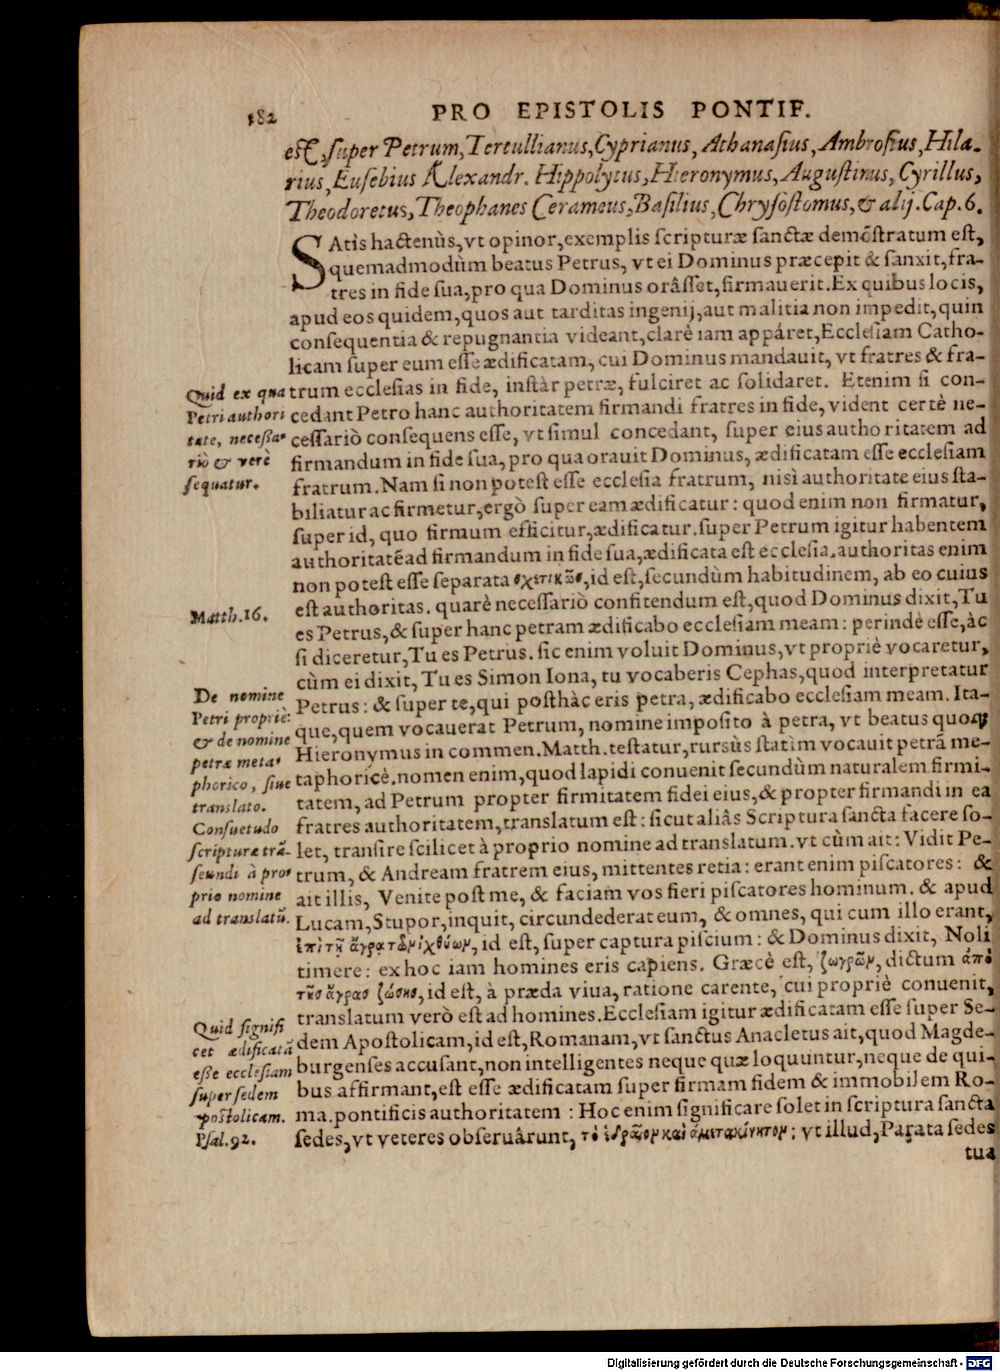 182 PRO EPISTOLIS PONTIF.
est, super Petrum, Tertullianus, Cyprianus, Athanasius, Ambrosius, Hila-
rius, Eusebius Alexandr. Hippolytus, Hieronymus, Augustinus, Cyrillus,
Theodoretus, Theophanes Cerameus, Basilius, Chrysostomus, & alij. Cap. 6.
SAtis hactenùs, vt opinor, exemplis scripturæ sanctæ demõstratum est,
quemadmodùm beatus Petrus, vt ei Dominus præcepit & sanxit, fra-
tres in fide sua, pro qua Dominus orâsset, firmauerit. Ex quibus locis,
apud eos quidem, quos aut tarditas ingenij, aut malitia non impedit, quin
consequentia & repugnantia videant, clarè iam appáret, Ecclesiam Catho-
licam super eum esse ædificatam, cui Dominus mandauit, vt fratres & fra-
trum ecclesias in fide, instàr petræ, fulciret ac solidaret. Etenim si con-
cedant Petro hanc authoritatem firmandi fratres in fide, vident certè ne-
cessariò consequens esse, vt simul concedant, super eius authoritatem ad
firmandum in fide sua, pro qua orauit Dominus, ædificatam esse ecclesiam
fratrum. Nam si non potest esse ecclesia fratrum, nisì authoritate eius sta-
biliatur ac firmetur, ergò super eam ædificatur: quod enim non firmatur,
super id, quo firmum efficitur, ædificatur. super Petrum igitur habentem
authoritatẽ ad firmandum in fide sua, ædificata est ecclesia. authoritas enim
non potest esse separata σχετικῶς, id est, secundùm habitudinem, ab eo cuius
est authoritas. quarè necessariò confitendum est, quod Dominus dixit, Tu
es Petrus, & super hanc petram ædificabo ecclesiam meam: perindè esse, àc
si diceretur, Tu es Petrus. sic enim voluit Dominus, vt propriè vocaretur,
cùm ei dixit, Tu es Simon Iona, tu vocaberis Cephas, quod interpretatur
Petrus: & super te, qui posthàc eris petra, ædificabo ecclesiam meam. Ita-
que, quem vocauerat Petrum, nomine imposito à petra, vt beatus quoq;
Hieronymus in commen. Matth. testatur, rursùs statìm vocauit petrã me-
taphoricè. nomen enim, quod lapidi conuenit secundùm naturalem firmi-
tatem, ad Petrum propter firmitatem fidei eius, & propter firmandi in ea
fratres authoritatem, translatum est: sicut aliâs Scriptura sancta facere so-
let, transire scilicet à proprio nomine ad translatum. vt cùm ait: Vidit Pe-
trum, & Andream fratrem eius, mittentes retia: erant enim piscatores: &
ait illis, Venite post me, & faciam vos fieri piscatores hominum. & apud
Lucam, Stupor, inquit, circundederat eum, & omnes, qui cum illo erant,
ἐπὶ τῇ ἄγρα τῶν ἰχθύων, id est, super captura piscium: & Dominus dixit, Noli
timere: ex hoc iam homines eris capiens. Græcè est, ζωγρῶν, dictum ἀπὸ
τῆς ἄγρας ζώσης, id est, à præda viua, ratione carente, cui propriè conuenit,
translatum verò est ad homines. Ecclesiam igitur ædificatam esse super Se-
dem Apostolicam, id est, Romanam, vt sanctus Anacletus ait, quod Magde-
burgenses accusant, non intelligentes neque quæ loquuntur, neque de qui-
bus affirmant, est esse ædificatam super firmam fidem & immobilem Ro-
ma. pontificis authoritatem: Hoc enim significare solet in scriptura sancta
sedes, vt veteres obseruârunt, τὸ ἑδραῖον καὶ ἀμετακίνητον; vt illud, Parata sedes
tua
Quid ex qua
Petri authori
tate, necessa-
riò & verè
sequatur.
Matth. 16.
De nomine
Petri propriè:
& de nomine
petræ meta-
phorico, siue
translato.
Consuetudo
scripturæ trã-
seundi à pro-
prio nomine
ad translatũ.
Quid signifi
cet ædificatã
esse ecclesiam
super sedem
Apostolicam.
Psal. 92.
Digitalisierung gefördert durch die Deutsche Forschungsgemeinschaft - DFG